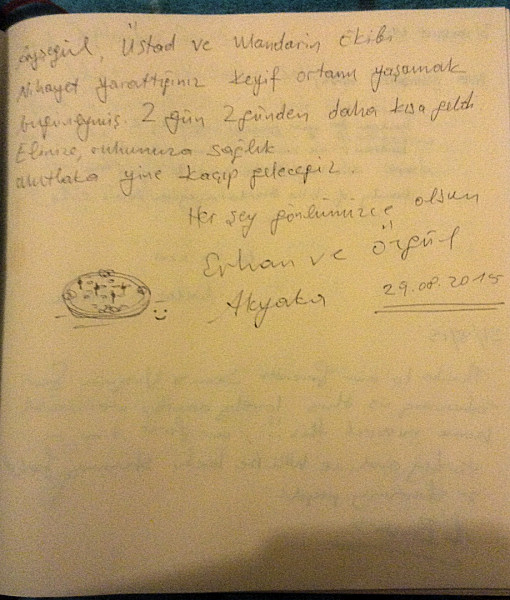 Ayşegül, Üstad ve Mandarin Ekibi
Nihayet yarattığınız keyif ortamı yaşamak
bugüneymiş. 2 gün 2 günden daha kısa geldi.
Elinize, ruhunuza sağlık
Mutlaka yine kaçıp geleceğiz.
Her şey gönlümüzce olsun
Erhan ve Örgül
Akyaka
29.08.2015